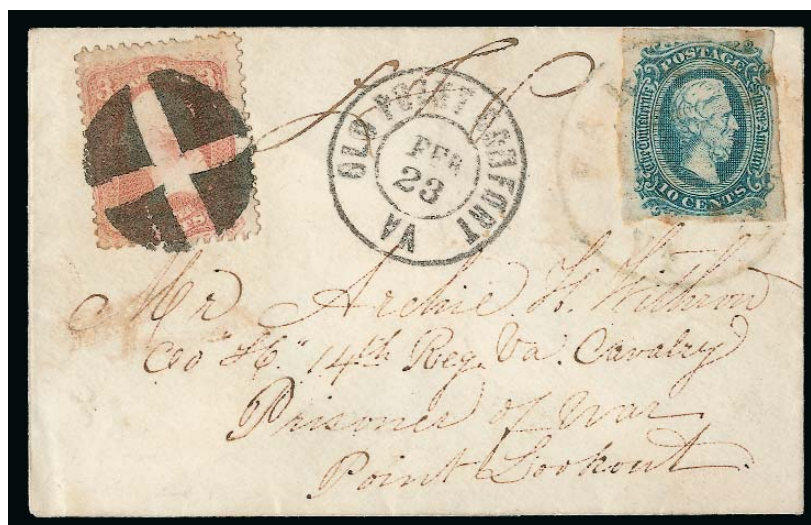 OLD POINT COMFORT
FEB
23
VA
POSTAGE
The Confederate States of America
10 CENTS
Mr Archie H.
Co "H." 14th Reg. Va. Cavalry
Prisoner of War
Point Lookout.